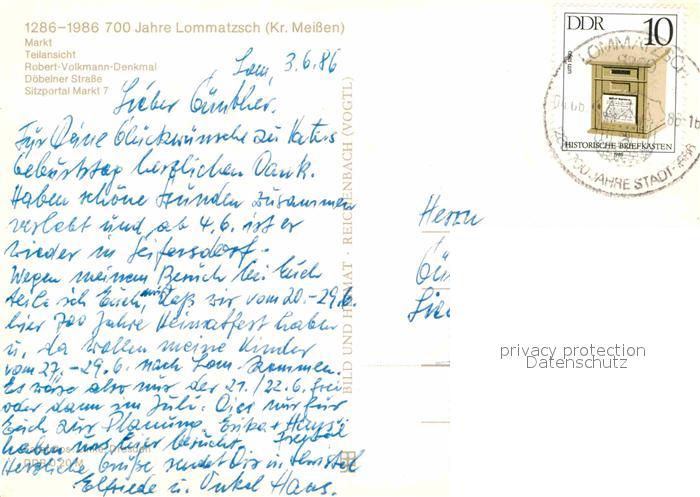 1286–1986 700 Jahre Lommatzsch (Kr. Meißen)
Markt
Teilansicht
Robert-Volkmann-Denkmal
Döbelner Straße
Sitzportal Markt 7
Lom, 3.6.86
Lieber Günther.
Für Deine Glückwünsche zu Vatis
Geburtstag herzlichen Dank.
Haben schöne Stunden zusammen
verlebt und ab 4.6. ist er
wieder in Seifersdorf.
Wegen meinem Besuch bei Euch
teile ich Euch mit, daß wir vom 20.-29.6.
hier 700 Jahre Heimatfest haben
u. da wollen meine Kinder
vom 27.-29.6. nach Lom. kommen.
Es wäre also nur der 21./22.6. frei
oder dann im Juli. Dies nur für
Euch zur Planung. Erika +
haben uns hier besucht.
Herzliche Grüße sendet Dir u. Christel
Elfriede u. Onkel Hans.
BILD UND HEIMAT · REICHENBACH (VOGTL)
DDR 10
um 1860
HISTORISCHE BRIEFKASTEN
1985
LOMMATZSCH
700 JAHRE STADT
Herrn
Gün
privacy protection
Datenschutz